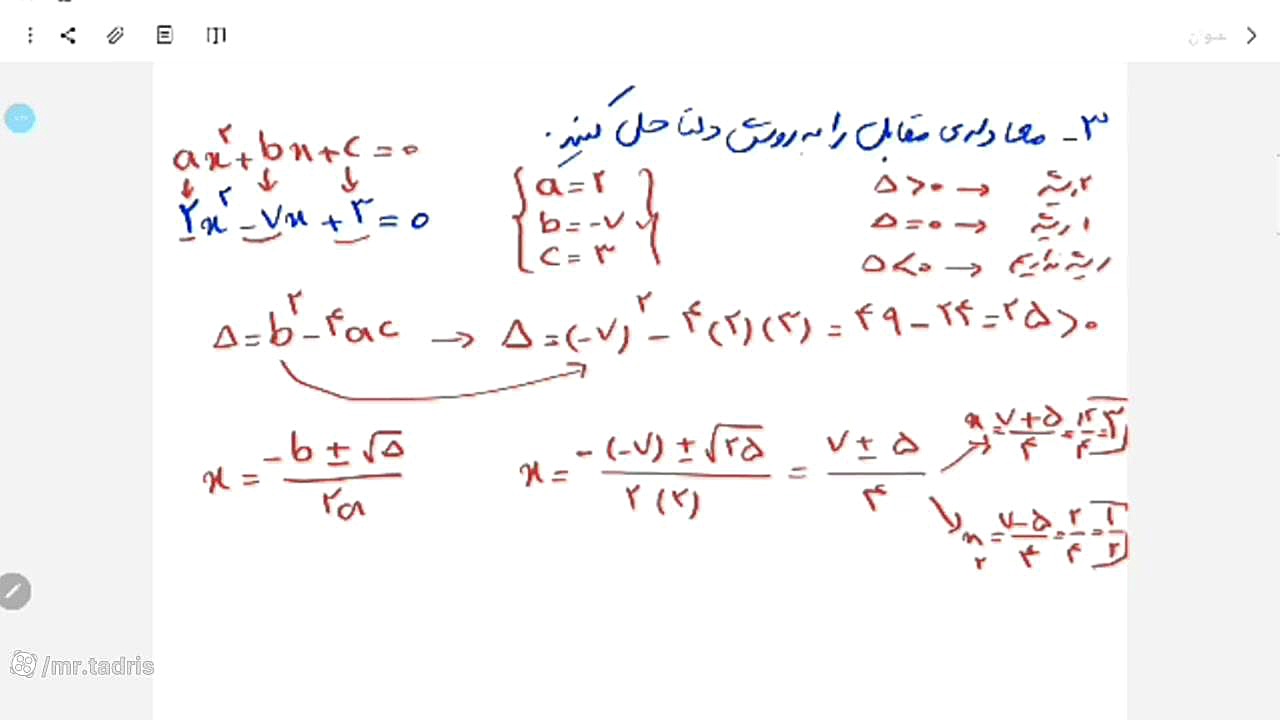 عنوان
۳- معادله‌ی مقابل را به روش دلتا حل کنید.
ax^۲ + bx + c = ۰
۲x^۲ - ۷x + ۳ = ۰
{ a = ۲
b = -۷
c = ۳ }
Δ > ۰ → ۲ ریشه
Δ = ۰ → ۱ ریشه
Δ < ۰ → ریشه نداریم
Δ = b^۲ - ۴ac → Δ = (-۷)^۲ - ۴(۲)(۳) = ۴۹ - ۲۴ = ۲۵ > ۰
x = (-b ± √Δ)/(۲a)
x = (-(-۷) ± √۲۵)/(۲(۲)) = (۷ ± ۵)/۴
x_۱ = (۷+۵)/۴ = ۱۲/۴ = ۳
x_۲ = (۷-۵)/۴ = ۲/۴ = ۱/۲
/mr.tadris